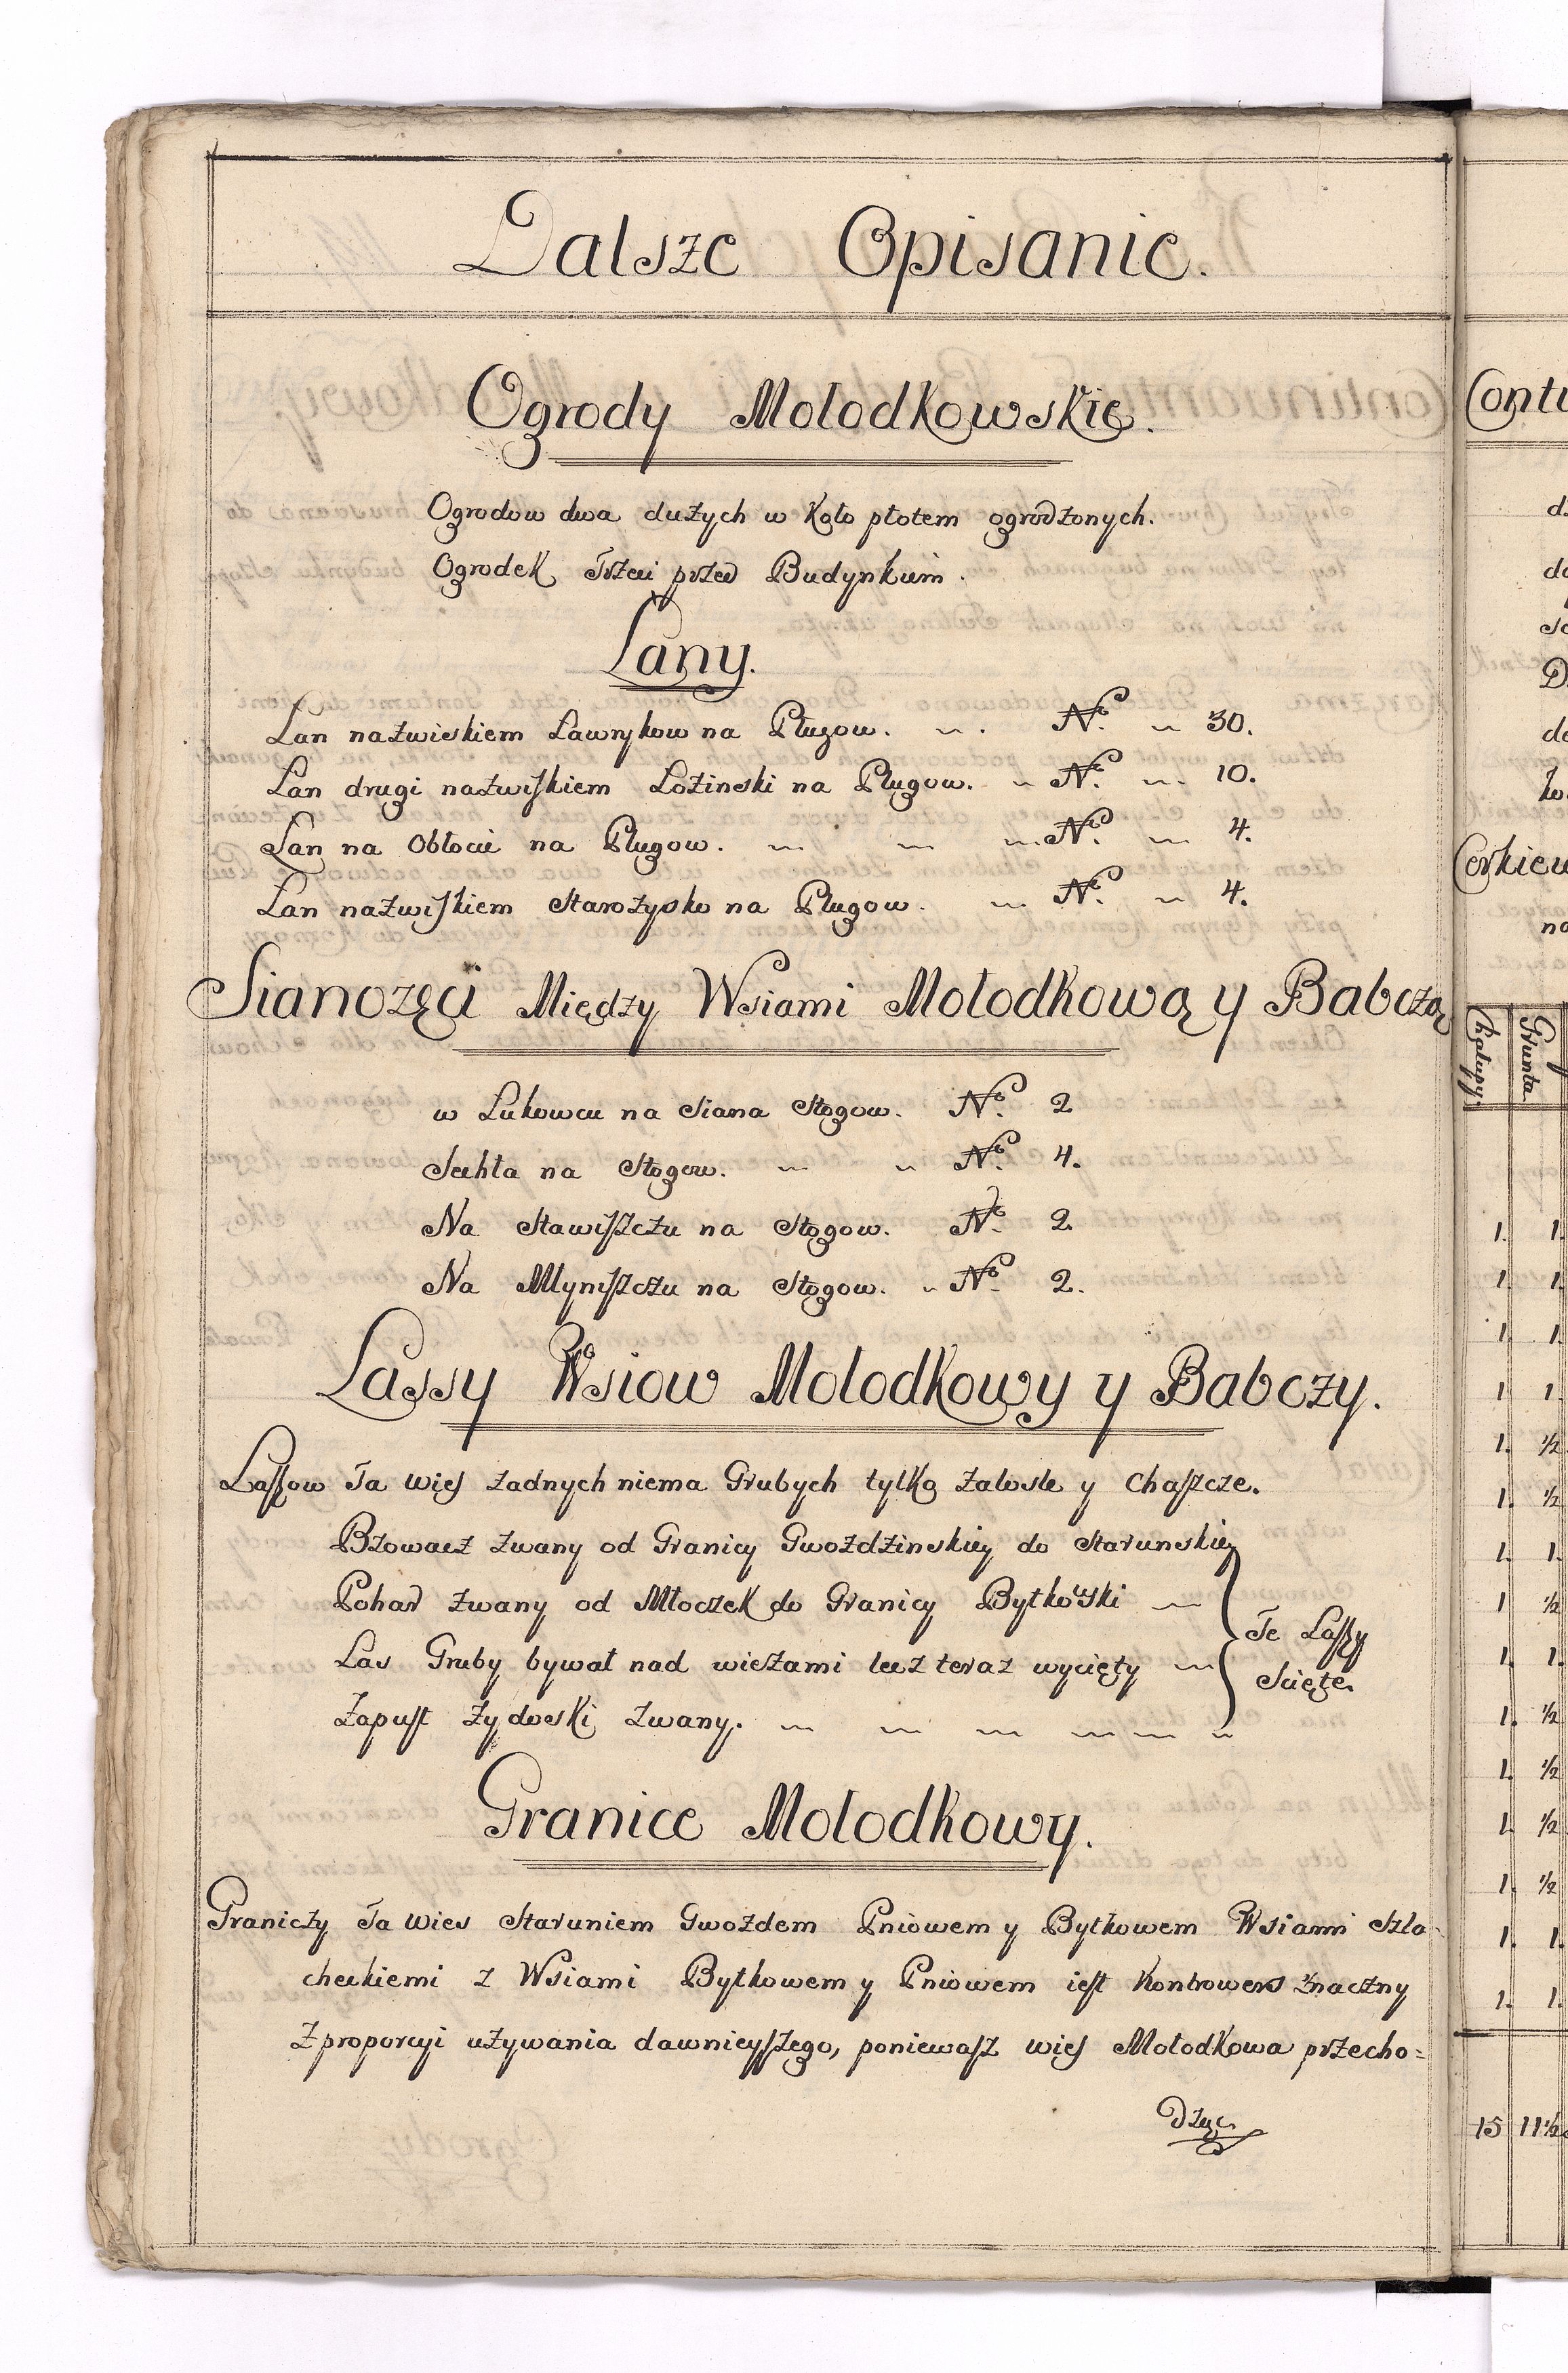 Dalsze Opisanie.
Ogrody Mołodkowskie.
Ogrodow dwa dużych w Koło płotem ogrodzonych.
Ogrodek Trzeci przed Budynkiem.
Łany.
Łan nazwiskiem Ławrykow na Pługow. No. 30.
Łan drugi nazwiskiem Łoziński na Pługow. No. 10.
Łan na Obłocie na Pługow. No. 4.
Łan nazwiskiem Starożysko na Pługow. No. 4.
Sianozęci Między Wsiami Mołodkową y Babczą
w Łukowcu na Siana Stogow. No. 2
Sichła na Stogow. No. 4.
Na Stawiszczu na Stogow. No. 2.
Na Młyniszczu na Stogow. No. 2.
Lassy Wsiow Mołodkowy y Babczy.
Lassow Ta wieś żadnych niema Grubych tylko zalosle y Chaszcze.
Bzowacz zwany od Granicy Gwoździnskiey do Starunskiey
Pohar zwany od Młoczek do Granicy Bytkowski
Las Gruby bywał nad wieżami lecz teraz wycięty
Zapust Zydowski zwany.
Te Lassy
Scięte.
Granice Mołodkowy.
Graniczy Ta wies Staruniem Gwozdem Pniowem y Bytkowem Wsiami Szla-
checkiemi z Wsiami Bytkowem y Pniowem iest Kontrowers znaczny
z proporcyi używania dawnieyszego, poniewasz wieś Mołodkowa przecho=
dząc
Contu
Cerkiew
no
Chałupy. Grunta.
1. 1.
1. 1.
1. 1.
1. 1.
1. ½
1. ½
1. 1.
1 ½
1. 1.
1. ½
1. ½
1. ½
1. ½
1. 1.
1. 1.
15 11½